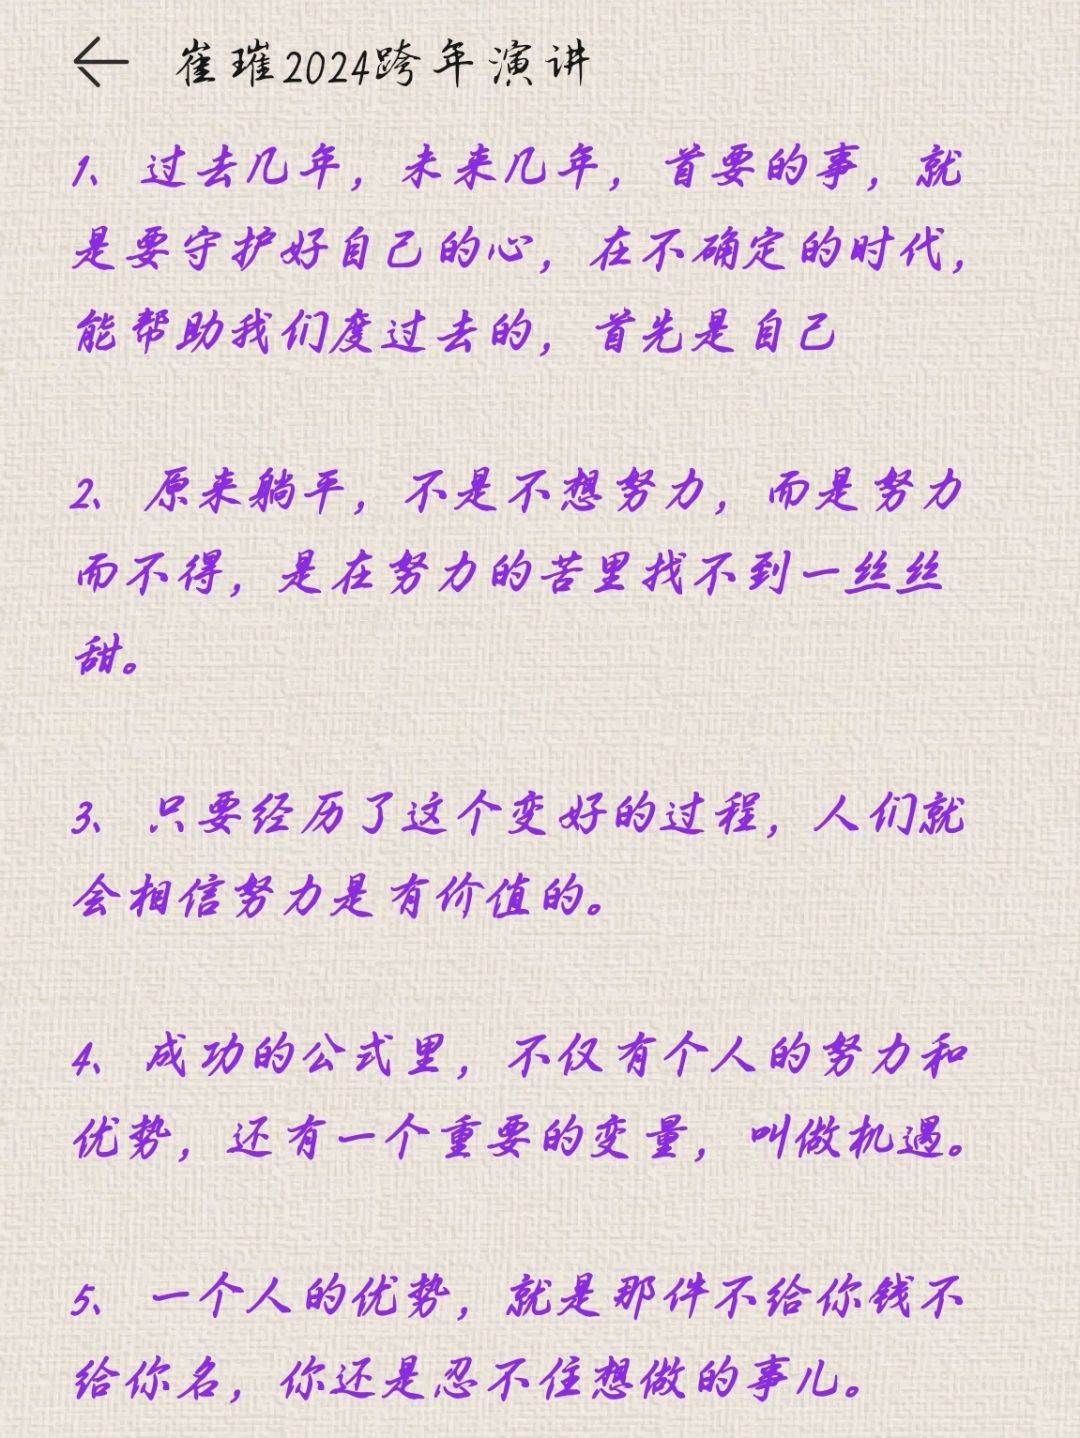 崔璀2024跨年演讲
1、过去几年，未来几年，首要的事，就
是要守护好自己的心，在不确定的时代，
能帮助我们度过去的，首先是自己
2、原来躺平，不是不想努力，而是努力
而不得，是在努力的苦里找不到一丝丝
甜。
3、只要经历了这个变好的过程，人们就
会相信努力是有价值的。
4、成功的公式里，不仅有个人的努力和
优势，还有一个重要的变量，叫做机遇。
5、一个人的优势，就是那件不给你钱不
给你名，你还是忍不住想做的事儿。